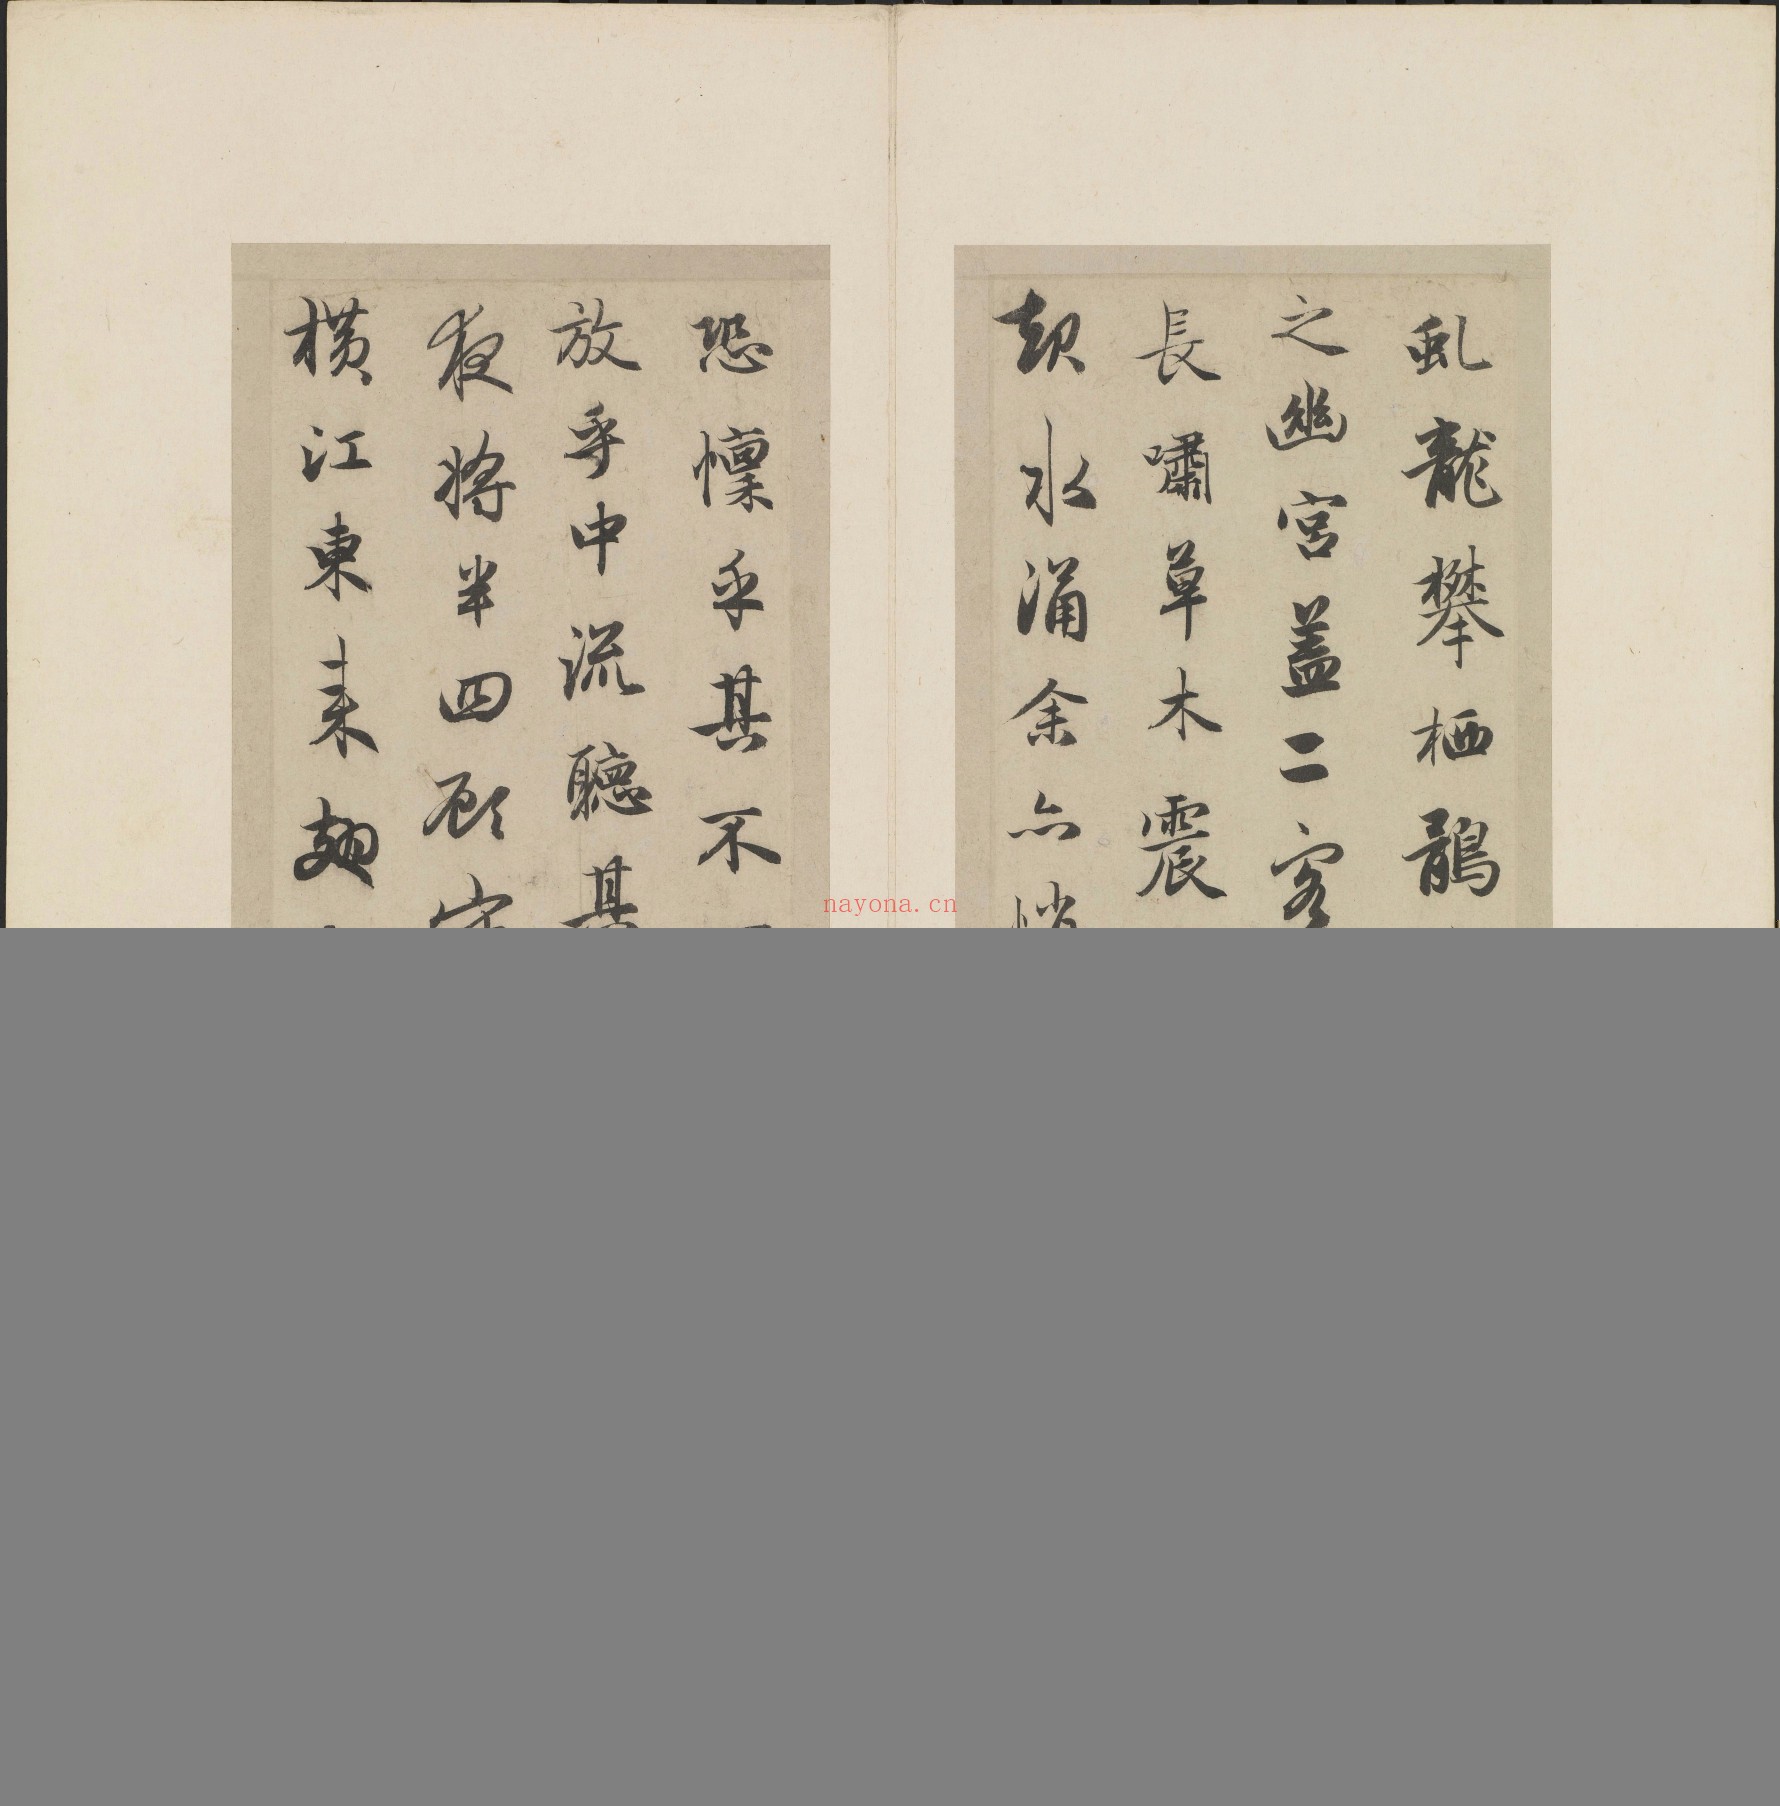 虬龍攀栖鶻
之幽宮盖二客
長嘯草木震
起水涌余亦悄
恐懍乎其不
放乎中流聽其
夜將半四顧
橫江東来翅
nayona.cn